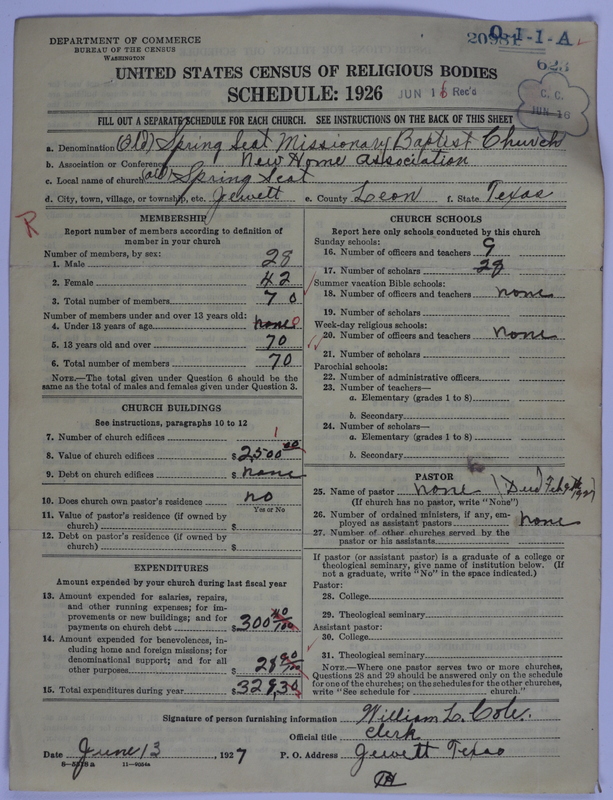 DEPARTMENT OF COMMERCE
BUREAU OF THE CENSUS
WASHINGTON
011-A
623
UNITED STATES CENSUS OF RELIGIOUS BODIES
SCHEDULE: 1926
JUN 16 Rec'd
C. C.
JUN 16
FILL OUT A SEPARATE SCHEDULE FOR EACH CHURCH. SEE INSTRUCTIONS ON THE BACK OF THIS SHEET
a. Denomination (Old) Spring Seat Missionary Baptist Church
b. Association or Conference New Home Association
c. Local name of church (old) Spring Seat
d. City, town, village, or township, etc. Jewett e. County Leon f. State Texas
R
MEMBERSHIP
Report number of members according to definition of
member in your church
Number of members, by sex:
1. Male 28
2. Female 42
3. Total number of members 70
Number of members under and over 13 years old:
4. Under 13 years of age none 0
5. 13 years old and over 70
6. Total number of members 70
NOTE.—The total given under Question 6 should be the
same as the total of males and females given under Question 3.
CHURCH BUILDINGS
See instructions, paragraphs 10 to 12
7. Number of church edifices 1
8. Value of church edifices $ 2,500 00
9. Debt on church edifices $ none
10. Does church own pastor's residence no
Yes or No
11. Value of pastor's residence (if owned by
church) $
12. Debt on pastor's residence (if owned by
church) $
EXPENDITURES
Amount expended by your church during last fiscal year
13. Amount expended for salaries, repairs,
and other running expenses; for im-
provements or new buildings; and for
payments on church debt $ 300 40/100
14. Amount expended for benevolences, in-
cluding home and foreign missions; for
denominational support; and for all
other purposes $ 28 90/100
15. Total expenditures during year $ 329,30
CHURCH SCHOOLS
Report here only schools conducted by this church
Sunday schools:
16. Number of officers and teachers 9
17. Number of scholars 28
Summer vacation Bible schools:
18. Number of officers and teachers none
19. Number of scholars
Week-day religious schools:
20. Number of officers and teachers none
21. Number of scholars
Parochial schools:
22. Number of administrative officers
23. Number of teachers—
a. Elementary (grades 1 to 8)
b. Secondary
24. Number of scholars—
a. Elementary (grades 1 to 8)
b. Secondary
PASTOR
25. Name of pastor none (Died Feb
(If church has no pastor, write "None")
26. Number of ordained ministers, if any, em-
ployed as assistant pastors none
27. Number of other churches served by the
pastor or his assistants
If pastor (or assistant pastor) is a graduate of a college or
theological seminary, give name of institution below. (If
not a graduate, write "No" in the space indicated.)
Pastor:
28. College
29. Theological seminary
Assistant pastor:
30. College
31. Theological seminary
NOTE.—Where one pastor serves two or more churches,
Questions 28 and 29 should be answered only on the schedule
for one of the churches; on the schedules for the other churches,
write "See schedule for church."
Signature of person furnishing information William L. Cole.
Official title Clerk
Date June 13, 1927 P. O. Address Jewett Texas
8-5518a 11-9054a